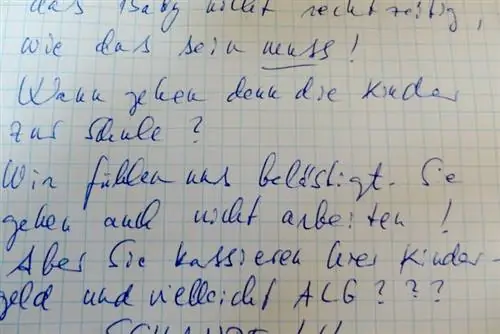 das Baby nicht rechtzeitig,
wie das sein muss!
Wann gehen denn die Kinder
zur Schule?
Wir fühlen uns belästigt. Sie
gehen auch nicht arbeiten!
Aber Sie kassieren hier Kinder-
geld und vielleicht ALG???
SCHANDE!!!